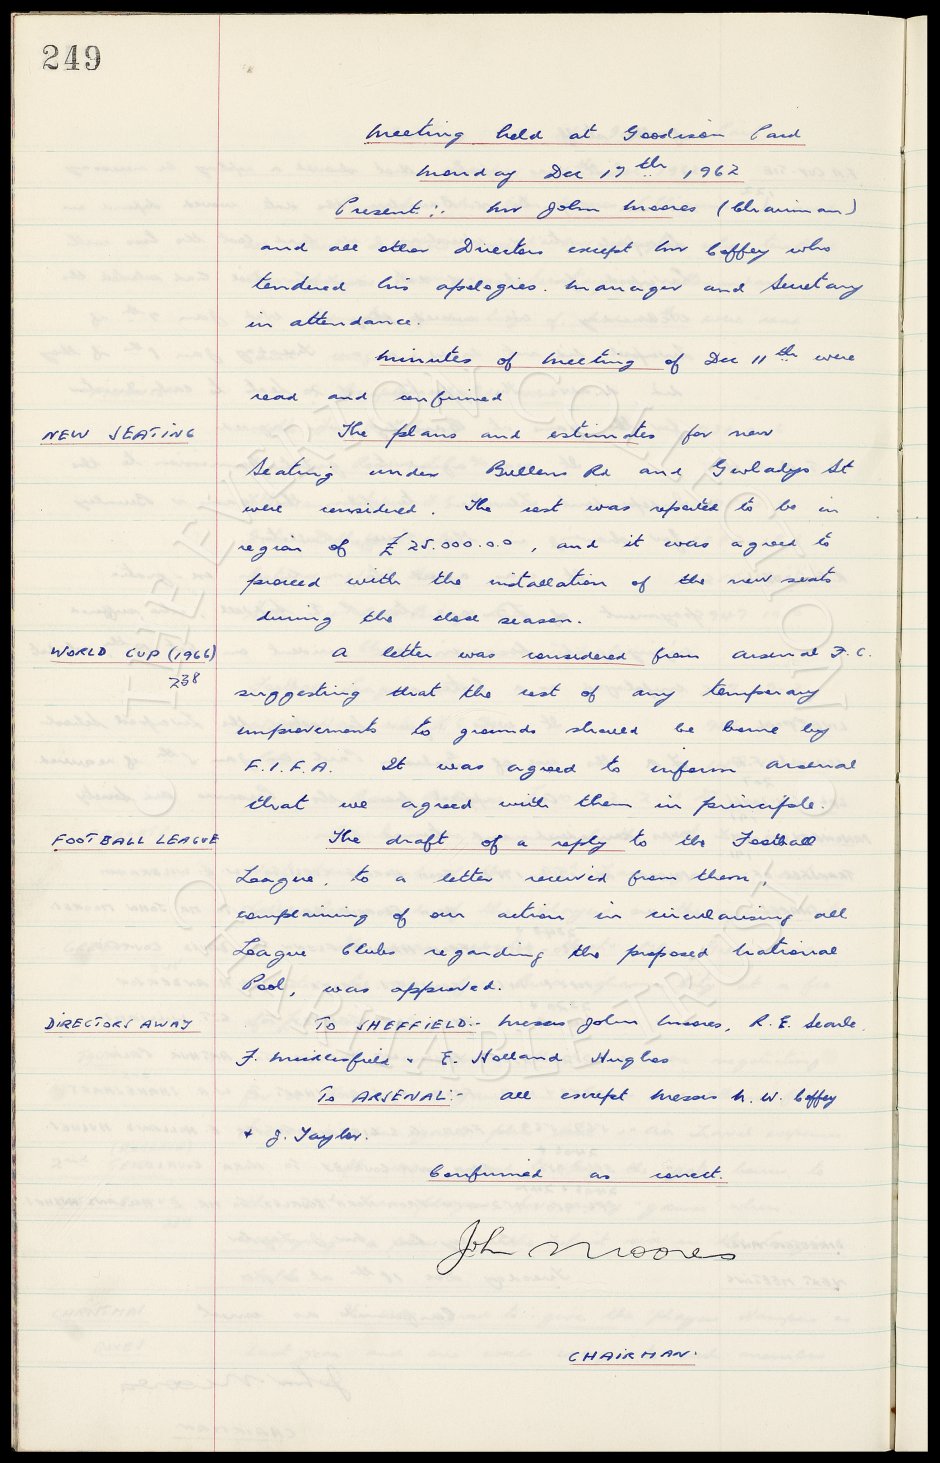 249
Meeting held at Goodison Park
Monday Dec 17th 1962
Present:- Mr John Moores (Chairman)
and all other Directors except Mr Coffey who
tendered his apologies. Manager and Secretary
in attendance.
Minutes of Meeting of Dec 11th were
read and confirmed
NEW SEATING The plans and estimates for new
seating under Bullens Rd and Gwladys St
were considered. The cost was reported to be in
region of £25.000.0.0, and it was agreed to
proceed with the installation of the new seats
during the close season.
WORLD CUP (1966) A letter was considered from Arsenal F.C.
238 suggesting that the cost of any temporary
improvements to grounds should be borne by
F.I.F.A. It was agreed to inform Arsenal
that we agreed with them in principle.
FOOTBALL LEAGUE The draft of a reply to the Football
League, to a letter received from them,
complaining of our action in circularising all
League Clubs regarding the proposed National
Pool, was approved.
DIRECTORS AWAY To SHEFFIELD:- Messrs John Moores, R. E. Searle,
F. Micklesfield & E. Holland Hughes
To ARSENAL:- All except Messrs N. W. Coffey
& J. Taylor.
Confirmed as correct.
John Moores
CHAIRMAN.
EVERTON COLLECTION CHARITABLE TRUST